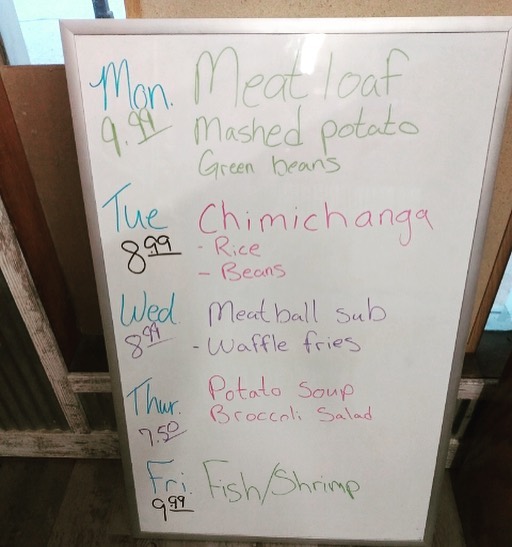 Mon. Meatloaf
9.99 Mashed potato
Green beans
Tue Chimichanga
8.99 - Rice
- Beans
Wed Meatball sub
8.99 - Waffle fries
Thur. Potato Soup
Broccoli Salad
7.50
Fri Fish/Shrimp
9.99